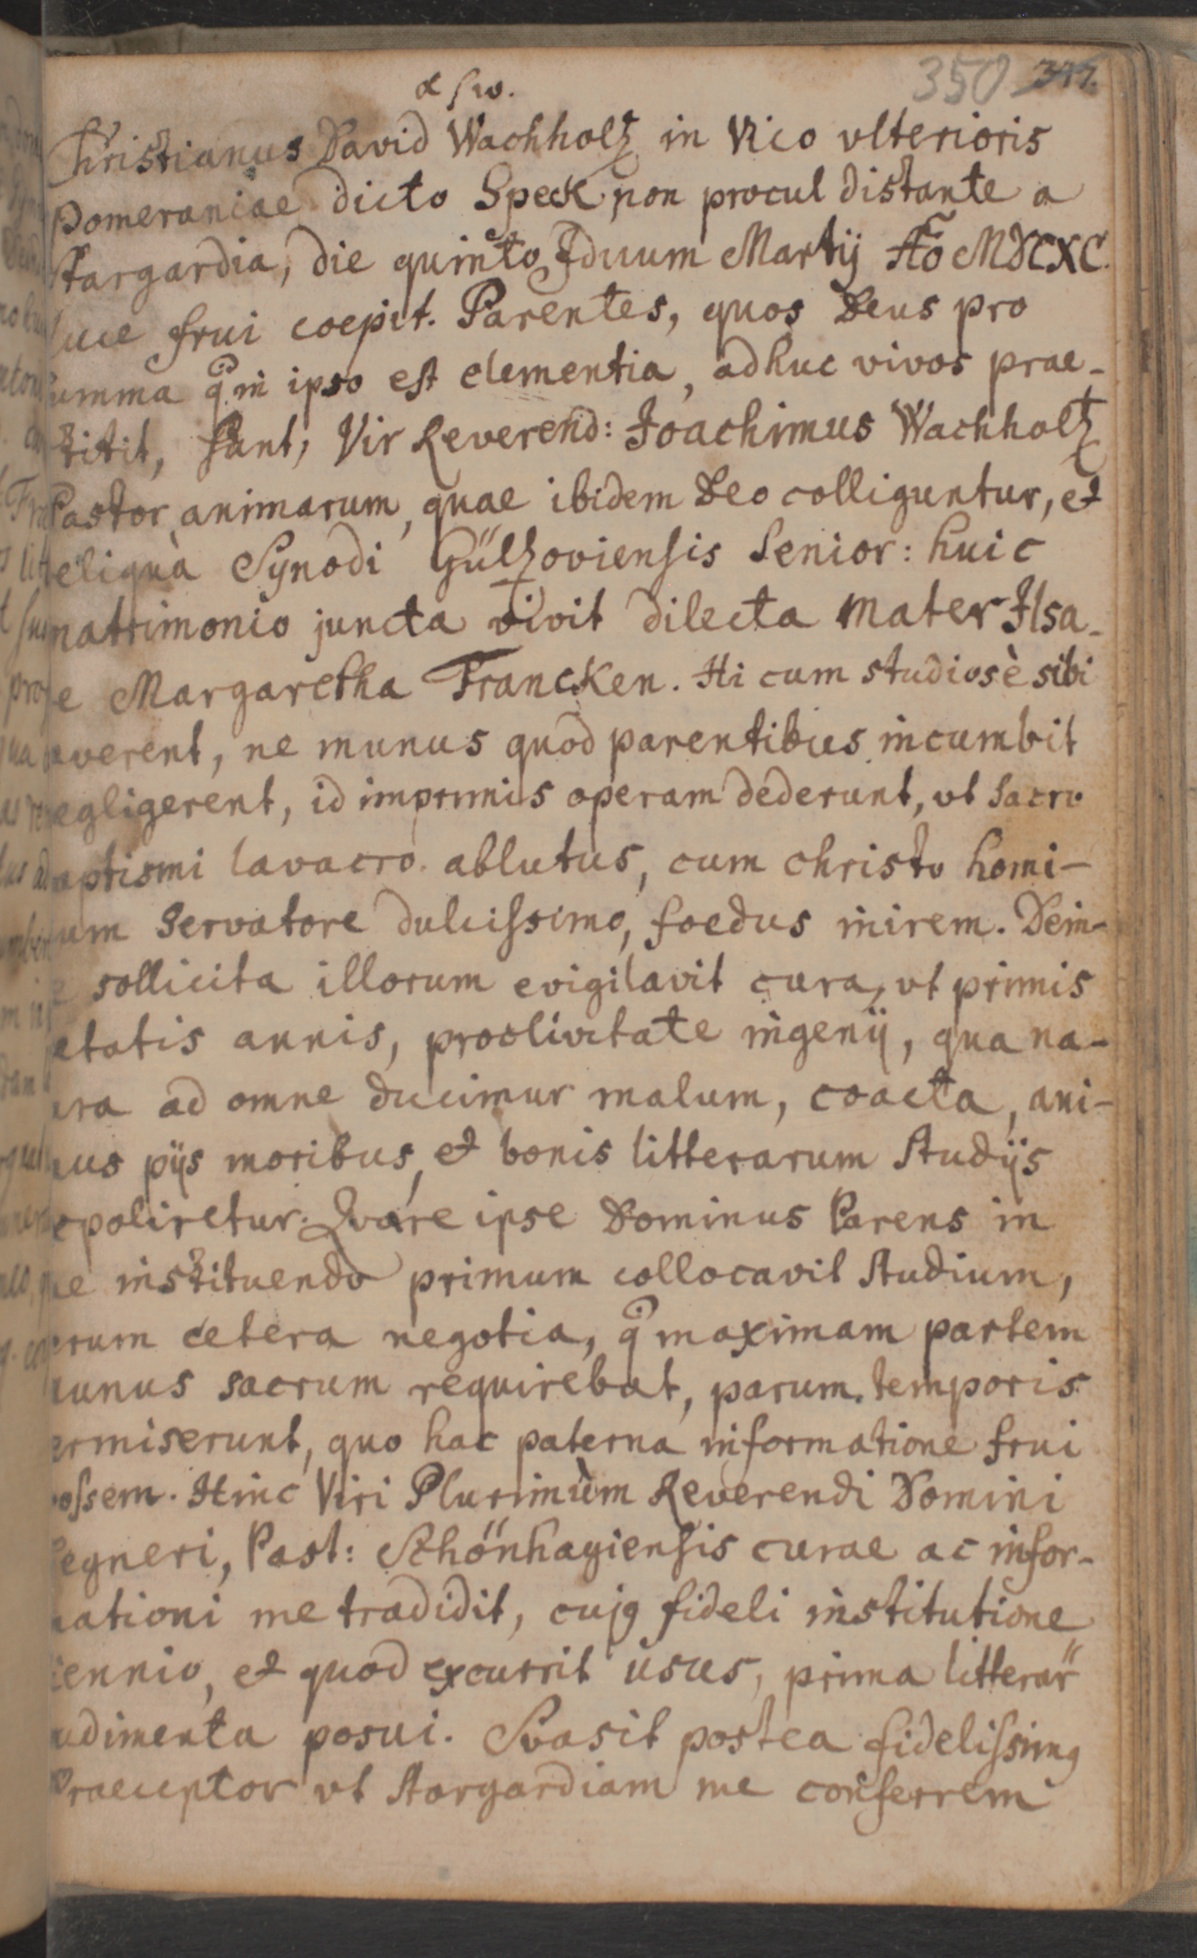 350 347.
α ω.
Christianus David Wachholtz in Vico vlterioris
Pomeraniae dicto Speck non procul distante a
Stargardia, die quinto Iduum Martij Aõ MDCXC.
luce frui coepit. Parentes, quos Deus pro
summa q in ipso est clementia, adhuc vivos prae-
stitit, sunt, Vir Reverend: Joachimus Wachholtz
Pastor animarum, quae ibidem Deo colliguntur, et
reliquà Synodi Gültzoviensis Senior: huic
matrimonio juncta vivit dilecta Mater Ilsa-
e Margaretha Francken. Hi cum studiosè sibi
caverent, ne munus quod parentibus incumbit
negligerent, id imprimis operam dederunt, vt sacro
baptismi lavacro ablutus, cum Christo homi-
num Servatore dulcissimo, foedus inirem. Dein-
e sollicita illorum evigilavit cura, vt primis
etatis annis, proclivitate ingenij, qua na-
ura ad omne ducimur malum, coacta, ani-
mus pijs moribus, et bonis litterarum studijs
expoliretur. Qvare ipse Dominus Parens in
me instituendo primum collocavit studium,
verum cetera negotia, q maximam partem
munus sacrum requirebat, parum temporis
permiserunt, quo hac paterna informatione frui
possem. Hinc Viri Plurimùm Reverendi Domini
egneri, Past: Schönhagiensis curae ac infor-
mationi me tradidit, cujq fideli institutione
iennio, et quod excurrit usus, prima litterar̃
rudimenta posui. Svasit postea fidelissimq
Praeceptor vt Stargardiam me conferrem